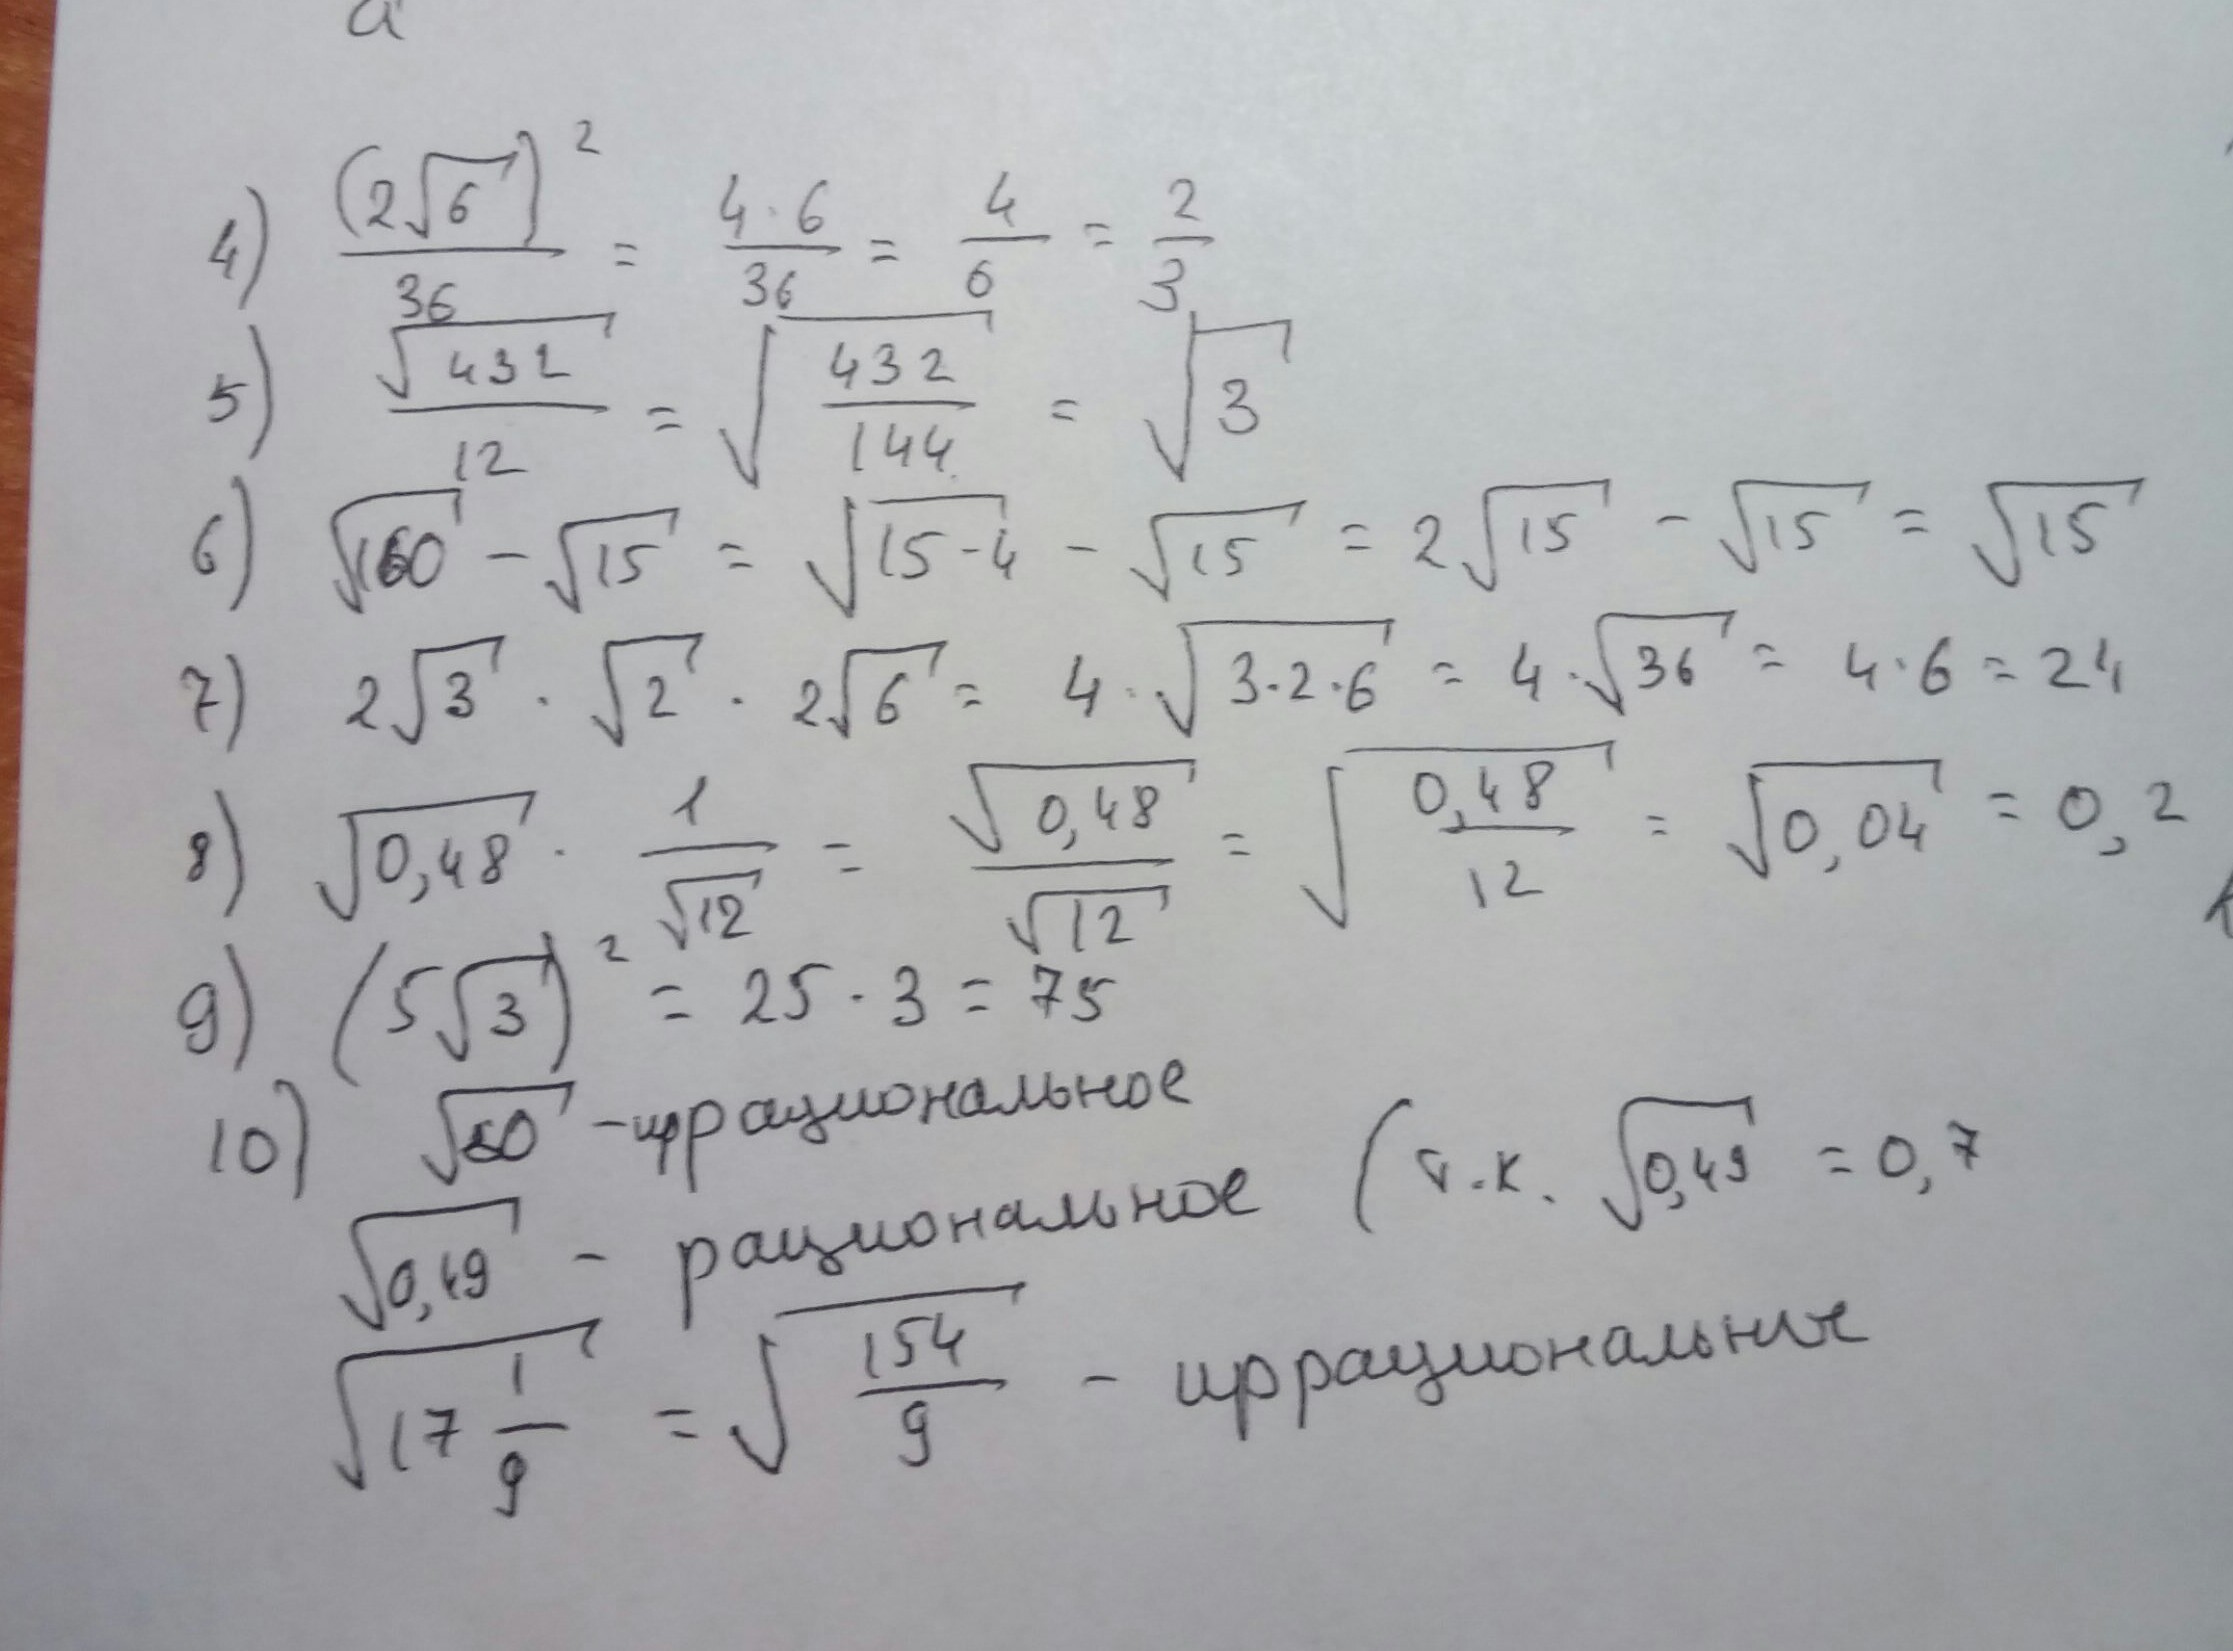 a
4) (2√6)² / 36 = 4·6 / 36 = 4/6 = 2/3
5) √432 / 12 = √(432/144) = √3
6) √60 - √15 = √(15·4) - √15 = 2√15 - √15 = √15
7) 2√3 · √2 · 2√6 = 4·√(3·2·6) = 4·√36 = 4·6 = 24
8) √0,48 · 1/√12 = √0,48 / √12 = √(0,48/12) = √0,04 = 0,2
9) (5√3)² = 25·3 = 75
10) √50 - иррациональное
√0,49 - рациональное (т.к. √0,49 = 0,7
√(17 1/9) = √(154/9) - иррациональное